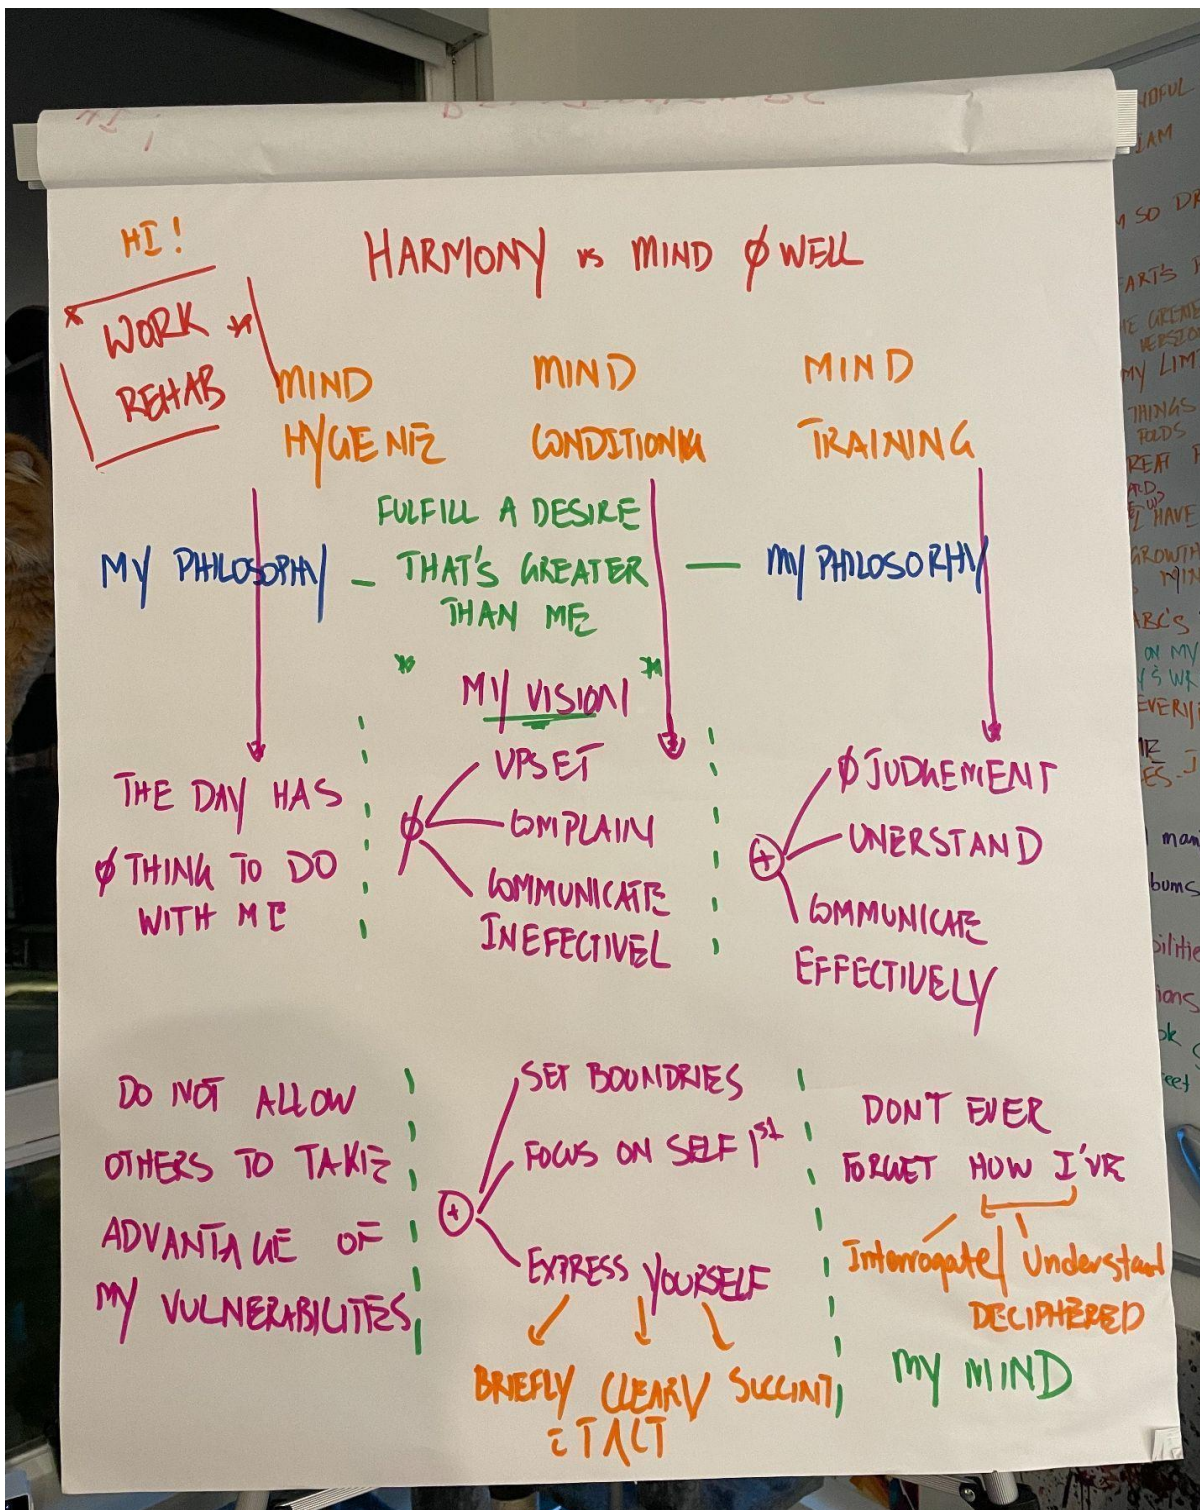 HI!
HARMONY vs MIND Ø WELL
* WORK *
REHAB
MIND
HYGENE
MIND
CONDITIONING
MIND
TRAINING
MY PHILOSOPHY —
FULFILL A DESIRE
THAT'S GREATER
THAN ME
— MY PHILOSOPHY
* MY VISION *
THE DAY HAS
Ø THING TO DO
WITH ME
Ø
UPSET
COMPLAIN
COMMUNICATE
INEFECTIVEL
+
Ø JUDGEMENT
UNERSTAND
COMMUNICATE
EFFECTIVELY
DO NOT ALLOW
OTHERS TO TAKE
ADVANTAGE OF
MY VULNERABILITES
+
SET BOUNDRIES
FOCUS ON SELF 1st
EXPRESS YOURSELF
BRIEFLY CLEARY SUCCINT
TACT
DON'T EVER
FORGET HOW I'VE
Interrogate/ Understand
DECIPHERED
MY MIND
I AM
MY LIM
THINGS
FOLDS
HAVE
ABC'S
ON MY